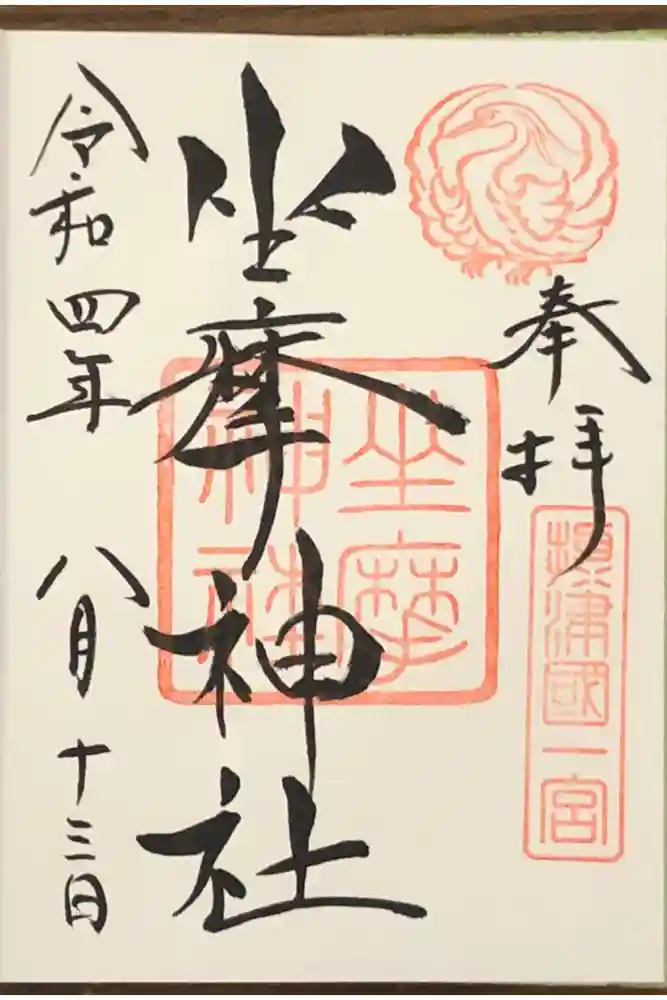 奉拝
摂津國一宮
坐摩神社
坐摩神社
令和四年八月十三日